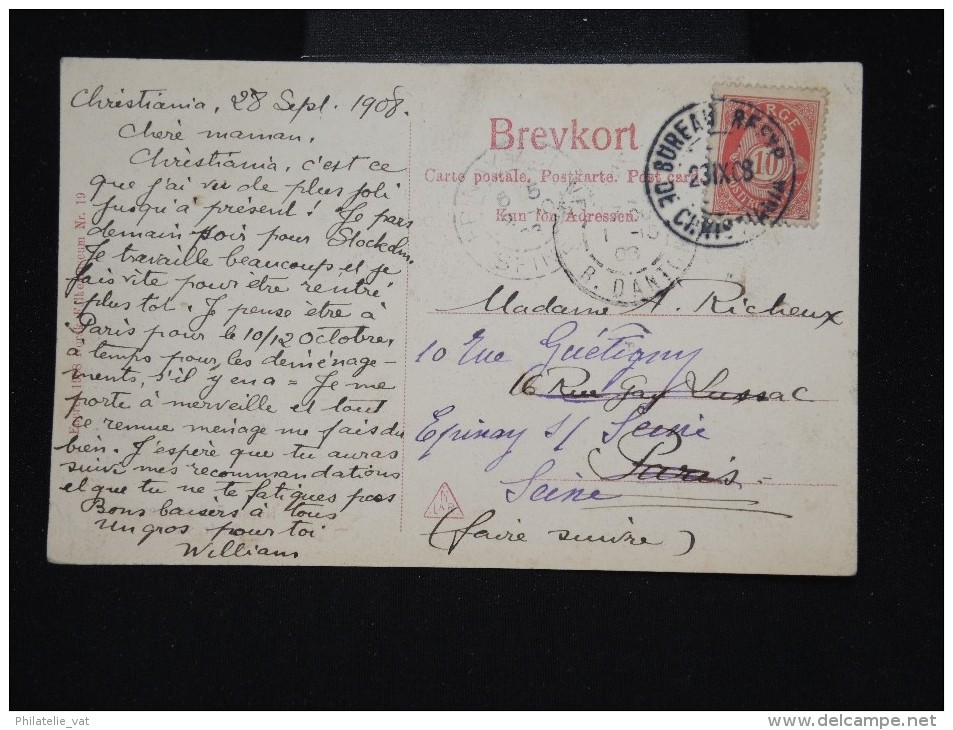 Christiania, 28 Sept. 1908.
Chere maman,
Christiania, c'est ce
que j'ai vu de plus joli
jusqu'à présent! Je pars
demain soir pour Stockolm
Je travaille beaucoup et je
fais vite pour être rentré
plus tot. Je pense être à
Paris pour le 10/12 Octobre,
a temps pour les deménage-
ments, s'il y en a = Je me
porte à merveille et tout
ce remue menage me fais du
bien. J'espère que tu auras
suivi mes recommandations
et que tu ne te fatigues pas
Bons baisers à tous
un gros pour toi
William
Brevkort
Carte postale. Postkarte. Post card
Kun för Adressen.
NORGE
10
DE BUREAU RECYP
23 IX 08
CHRISTIANIA
R. DANTON
SEINE
Madame A. Richeux
10 Rue Guétigny
16 Rue Gay Lussac
Epinay S/ Seine
Paris
Seine
(faire suivre)
Nr. 19
Philatelie_vat
http://www.delcampe.net